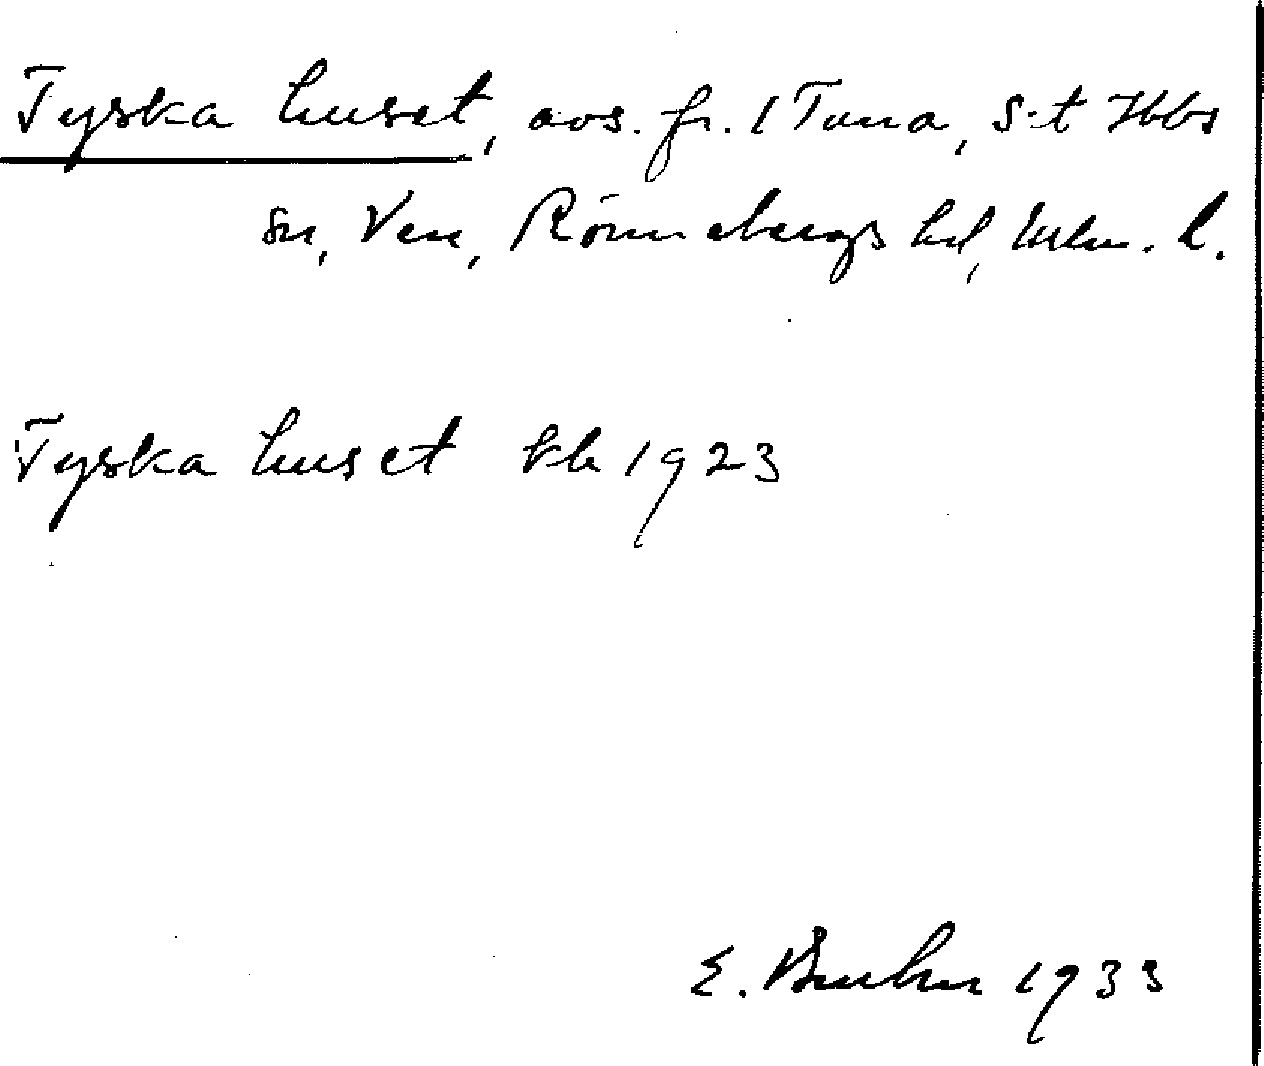 Tyska huset, avs. fr. 1 Tuna, S:t Ibbs
sn, Ven, Rönnebergs hd, Mlm. l.
Tyska huset kb 1923
E. 1933